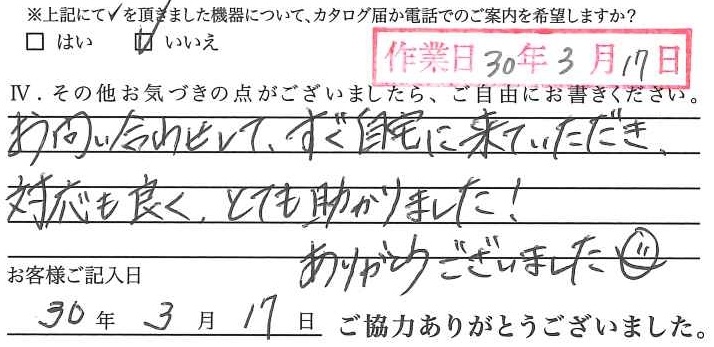 ※上記にて✓を頂きました機器について、カタログ届か電話でのご案内を希望しますか?
□ はい ☑ いいえ
作業日 30年 3月 17日
Ⅳ．その他お気づきの点がございましたら、ご自由にお書きください。
お問い合わせして、すぐ自宅に来ていただき、
対応も良く、とても助かりました！
ありがとうございました
お客様ご記入日
30 年 3 月 17 日 ご協力ありがとうございました。